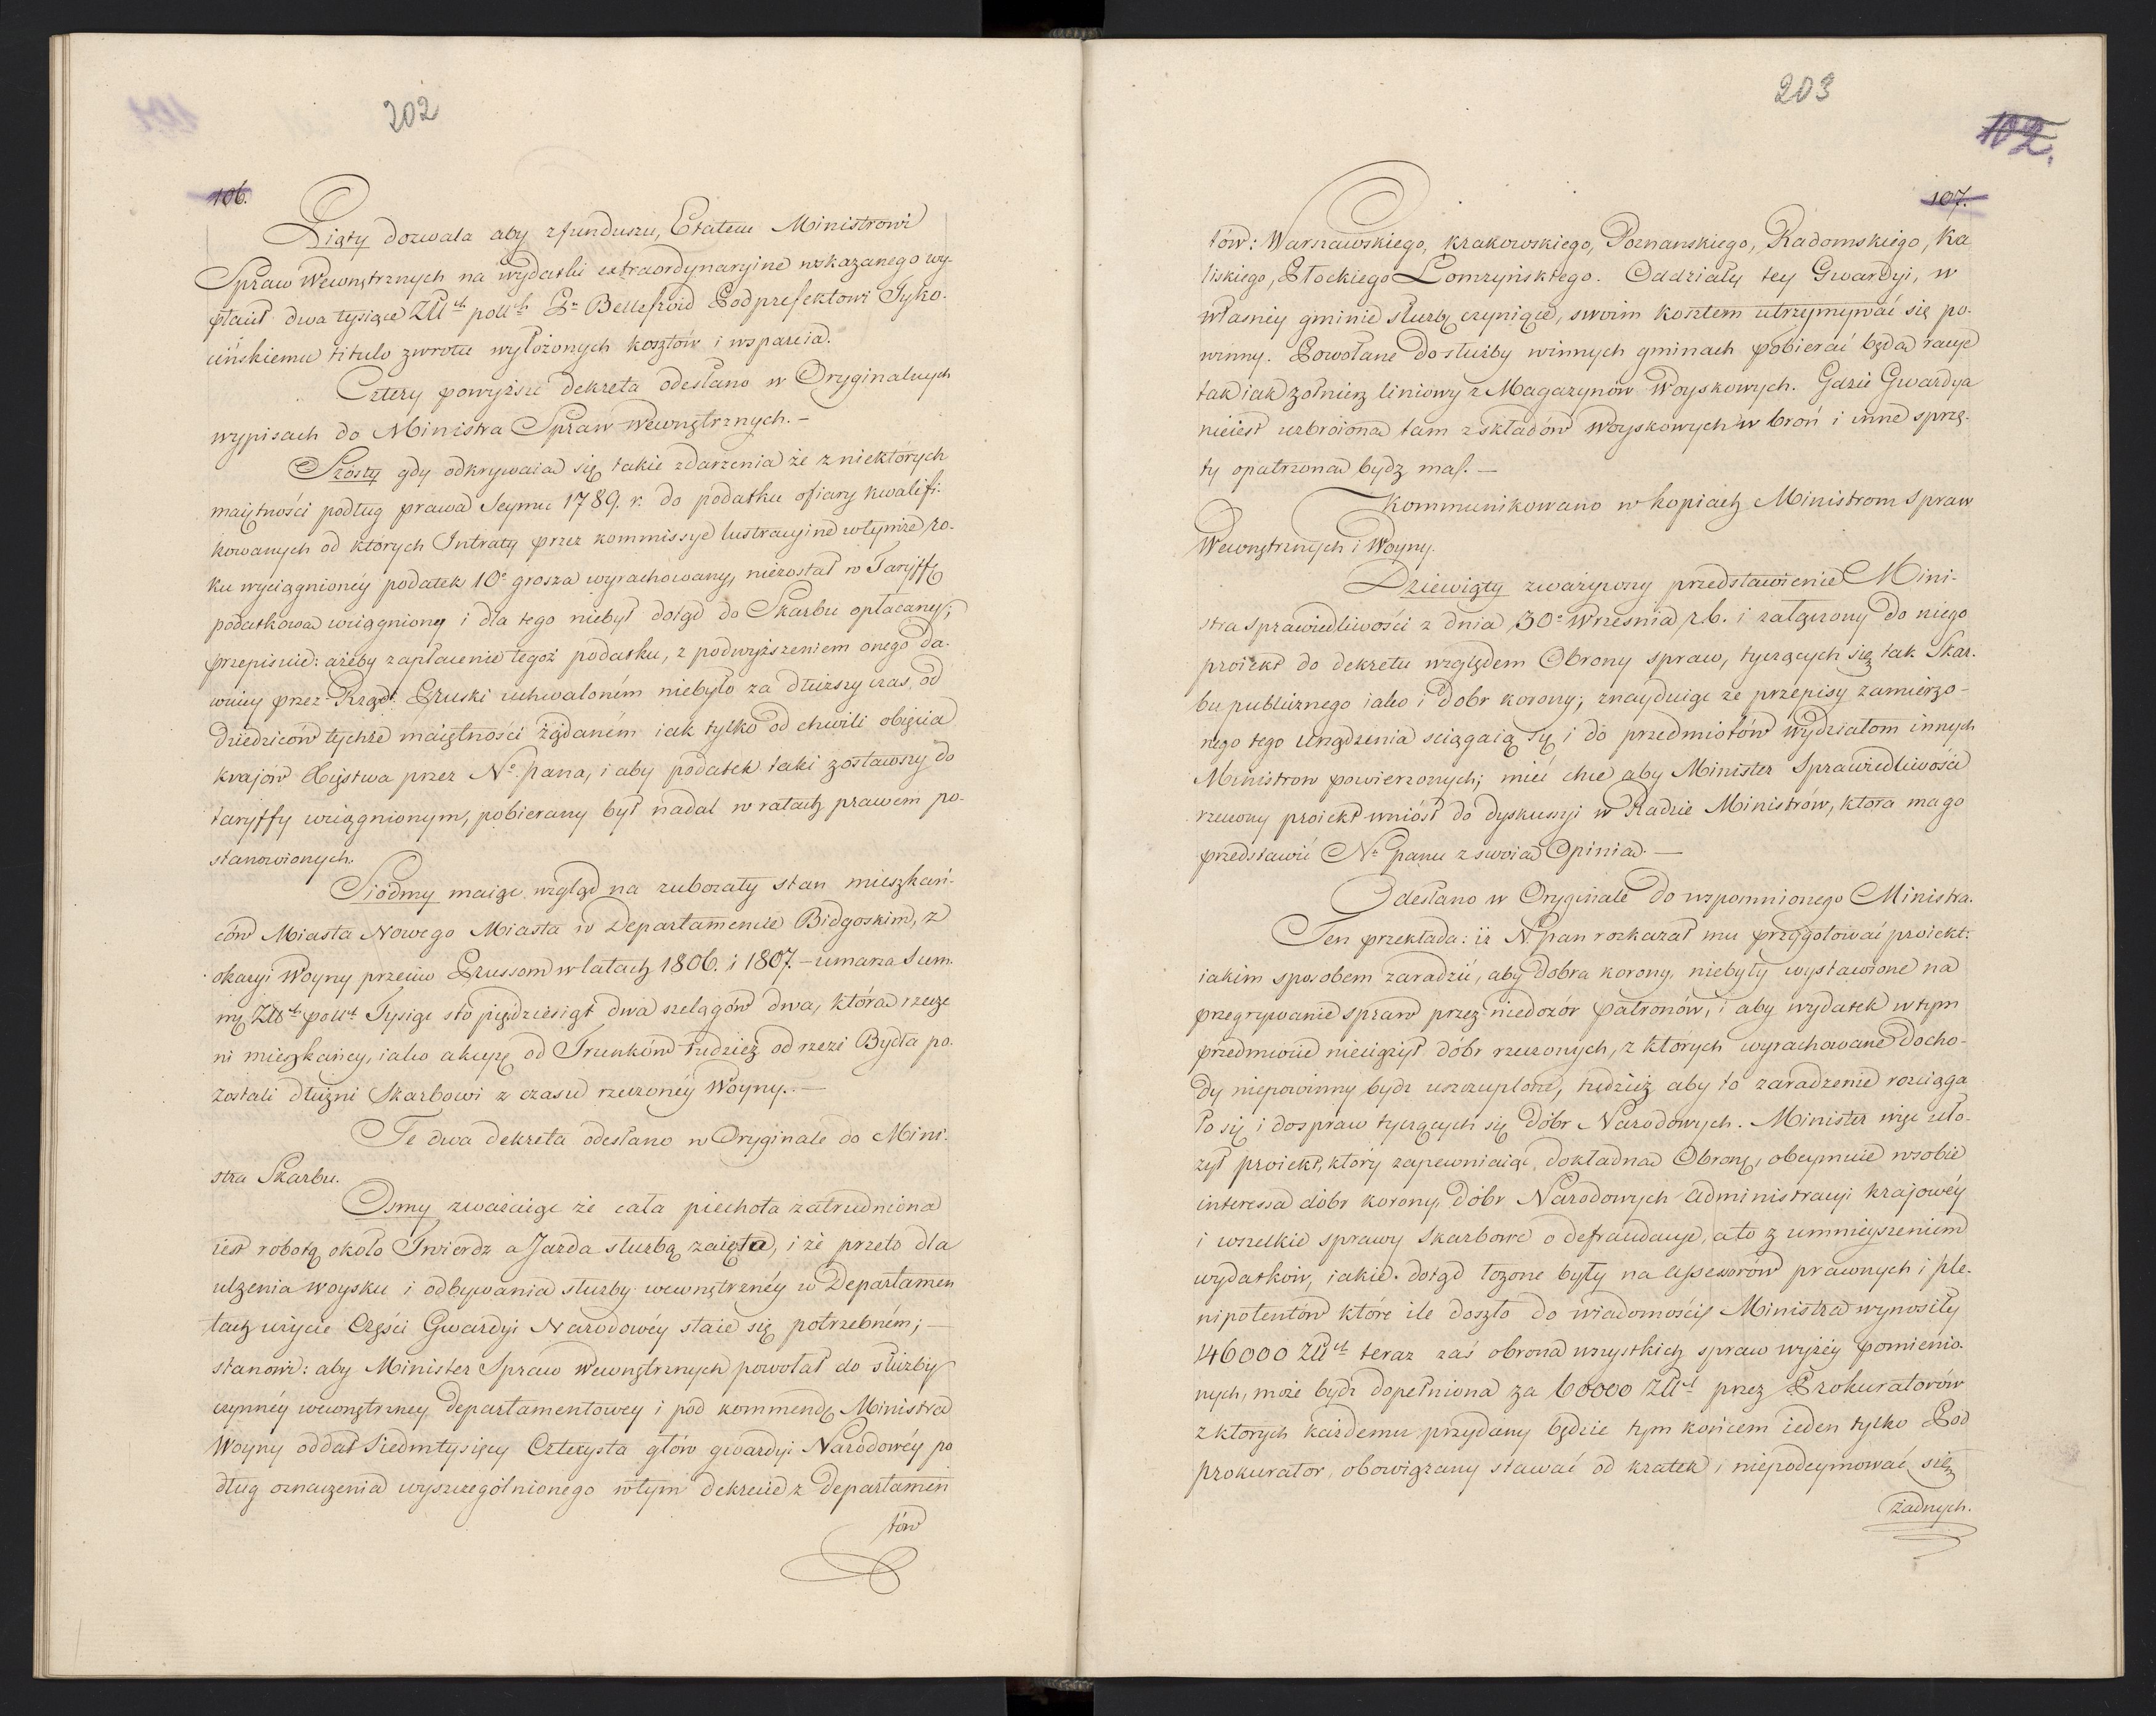 202
106.
Piąty dozwala aby z funduszu, Etatem Ministrowi
Spraw Wewnętrznych na wydatki extraordynaryine wskazanego wy-
płacił dwa tysiące Złł. poll. Pu Bellefroid Podprefektowi Tyko-
cińskiemu titulo zwrotu wyłożonych kosztów i wsparcia.
Cztery powyższe dekreta odesłano w Oryginalnych
wypisach do Ministra Spraw Wewnętrznych. –
Szósty gdy odkrywaia się takie zdarzenia że z niektorych
maiętności podług prawa Seymu 1789. r. do podatku ofiary kwalifi-
kowanych od których Intraty przez kommissye lustracyine w tymże ro-
ku wyciągnioney podatek 10o grosza wyrachowany, niezostał w Taryffę
podatkową wciągniony i dla tego niebył dotąd do Skarbu opłacany;
przepisuie: ażeby zapłacenie tegoż podatku, z podwyższeniem onego da-
wniey przez Rząd Pruski uchwaloném niebyło za dłuższy czas, od
dziedziców tychże maiętności żądaném iak tylko od chwili obięcia
krajów Xięstwa przez No. Pana, i aby podatek taki zostawszy do
taryffy wciągnionym, pobierany był nadal w ratach prawem po-
stanowionych.
Siodmy maiąc wzgląd na zubożały stan mieszkań-
ców Miasta Nowego Miasta w Departamencie Bidgoskim, z
okazyi Woyny przeciw Prussom w latach 1806. i 1807. – umarza Sum-
mę Złł. poll. Tysiąc sto pięćdziesiąt dwa szelągów dwa, która rzecze
ni mieszkańcy, iako akcyzę od Trunków tudzież od rzezi Bydła po-
zostali dłużni Skarbowi z czasu rzeczonéy Woyny. –
Te dwa dekreta odesłano w Oryginale do Mini-
stra Skarbu.
Osmy zważaiąc że cała piechota zatrudniona
iest robotą około Twierdz a Jazda służbą zaięta, i że przeto dla
ulżenia woysku i odbywania służby wewnętrznéy w Departamen
tach użycie Części Gwardyi Narodowéy staie się potrzebném; –
stanowi: aby Minister Spraw Wewnętrznych powołał do służby
czynnéy wewnętrzney departamentowey i pod kommendę Ministra
Woyny oddał Siedmtysięcy Czterysta głów gwardyi Narodowéy po
dług oznaczenia wyszczególnionego w tym dekrecie z Departamen
tów
203
102.
107.
tów: Warszawskiego, Krakowskiego, Poznanskiego, Radomskiego, Ka
liskiego, Płockiego Łomzyńskiego. Oddziały tey Gwardyi, w
własnéy gminie służbę czyniące, swoim kosztem utrzymywać się po-
winny. Powołane do służby w innych gminach pobierać będą racye
tak iak żołnierz liniowy z Magazynów Woyskowych. Gdzie Gwardya
nieiest uzbroioną tam z składów Woyskowych w broń i inne sprzę-
ty opatrzona bydz ma. –
Kommunikowano w kopiach Ministrom Spraw
Wewnętrznych i Woyny.
Dziewiąty zważywszy przedstawienie Mini-
stra Sprawiedliwości z dnia 30o Września r.b. i załączony do niego
proiekt do dekretu względem Obrony spraw, tyczących się tak Skar-
bu publicznego iako i Dobr korony; znayduiąc że przepisy zamierzo-
nego tego urządzenia sciągaią się i do przedmiotów Wydziałom innych
Ministrow powierzonych; mieć chce aby Minister Sprawiedliwości
rzeczony proiekt wniósł do dyskussyi w Radzie Ministrów, która ma go
przedstawić No Panu z swoią Opinią. –
Odesłano w Oryginale do wspomnionego Ministra.
Ten przekłada: iż N. Pan rozkazał mu przygotować proiekt:
iakim sposobem zaradzić, aby dobra korony, niebyły wystawione na
przegrywanie spraw przez niedozór patronów, i aby wydatek w tym
przedmiocie niecięzył dóbr rzeczonych, z których wyrachowane docho-
dy niepowinny bydz uszczuplone, tudzież aby to zaradzenie rozciąga
ło się i do spraw tyczących się Dóbr Narodowych. Minister więc uło-
żył proiekt, który zapewniaiąc dokładną Obronę, obeymuie w sobie
interessa dóbr korony, dóbr Narodowych administracyi krajowéy
i wszelkie sprawy Skarbowe o defraudacye, a to z umnieyszeniem
wydatków, iakie dotąd łożone były na Assessorów prawnych i ple-
nipotentów które ile doszło do wiadomości Ministra wynosiły
146000 Złł. teraz zaś obrona wszystkich spraw wyżéy pomienio-
nych, może bydź dopełniona za 60000 Złł. przez Prokuratorów
z ktorych każdemu przydany będzie tym końcem ieden tylko Pod
prokurator, obowiązany stawać od kratek i niepodeymować się
żadnych.